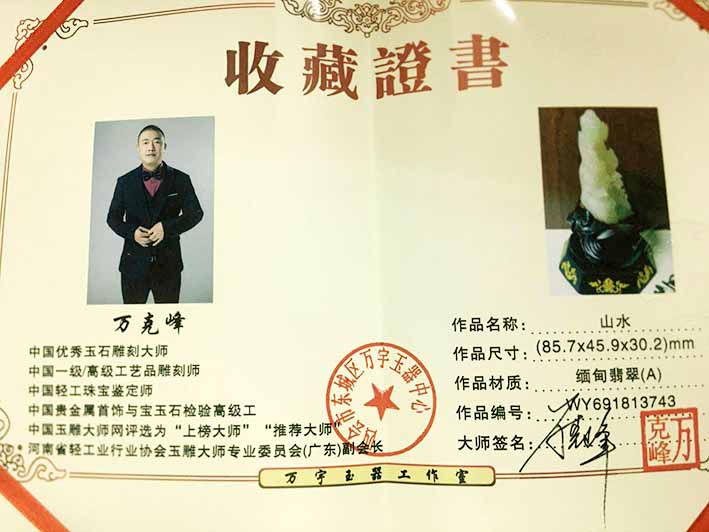 收藏證書
万克峰
中国优秀玉石雕刻大师
中国一级/高级工艺品雕刻师
中国轻工珠宝鉴定师
中国贵金属首饰与宝玉石检验高级工
中国玉雕大师网评选为“上榜大师” “推荐大师”
河南省轻工业行业协会玉雕大师专业委员会(广东)副会长
作品名称: 山水
作品尺寸: (85.7x45.9x30.2)mm
作品材质: 缅甸翡翠(A)
作品编号: WY691813743
大师签名:
四会市东城区万宇玉器中心
万克峰
万宇玉器工作室